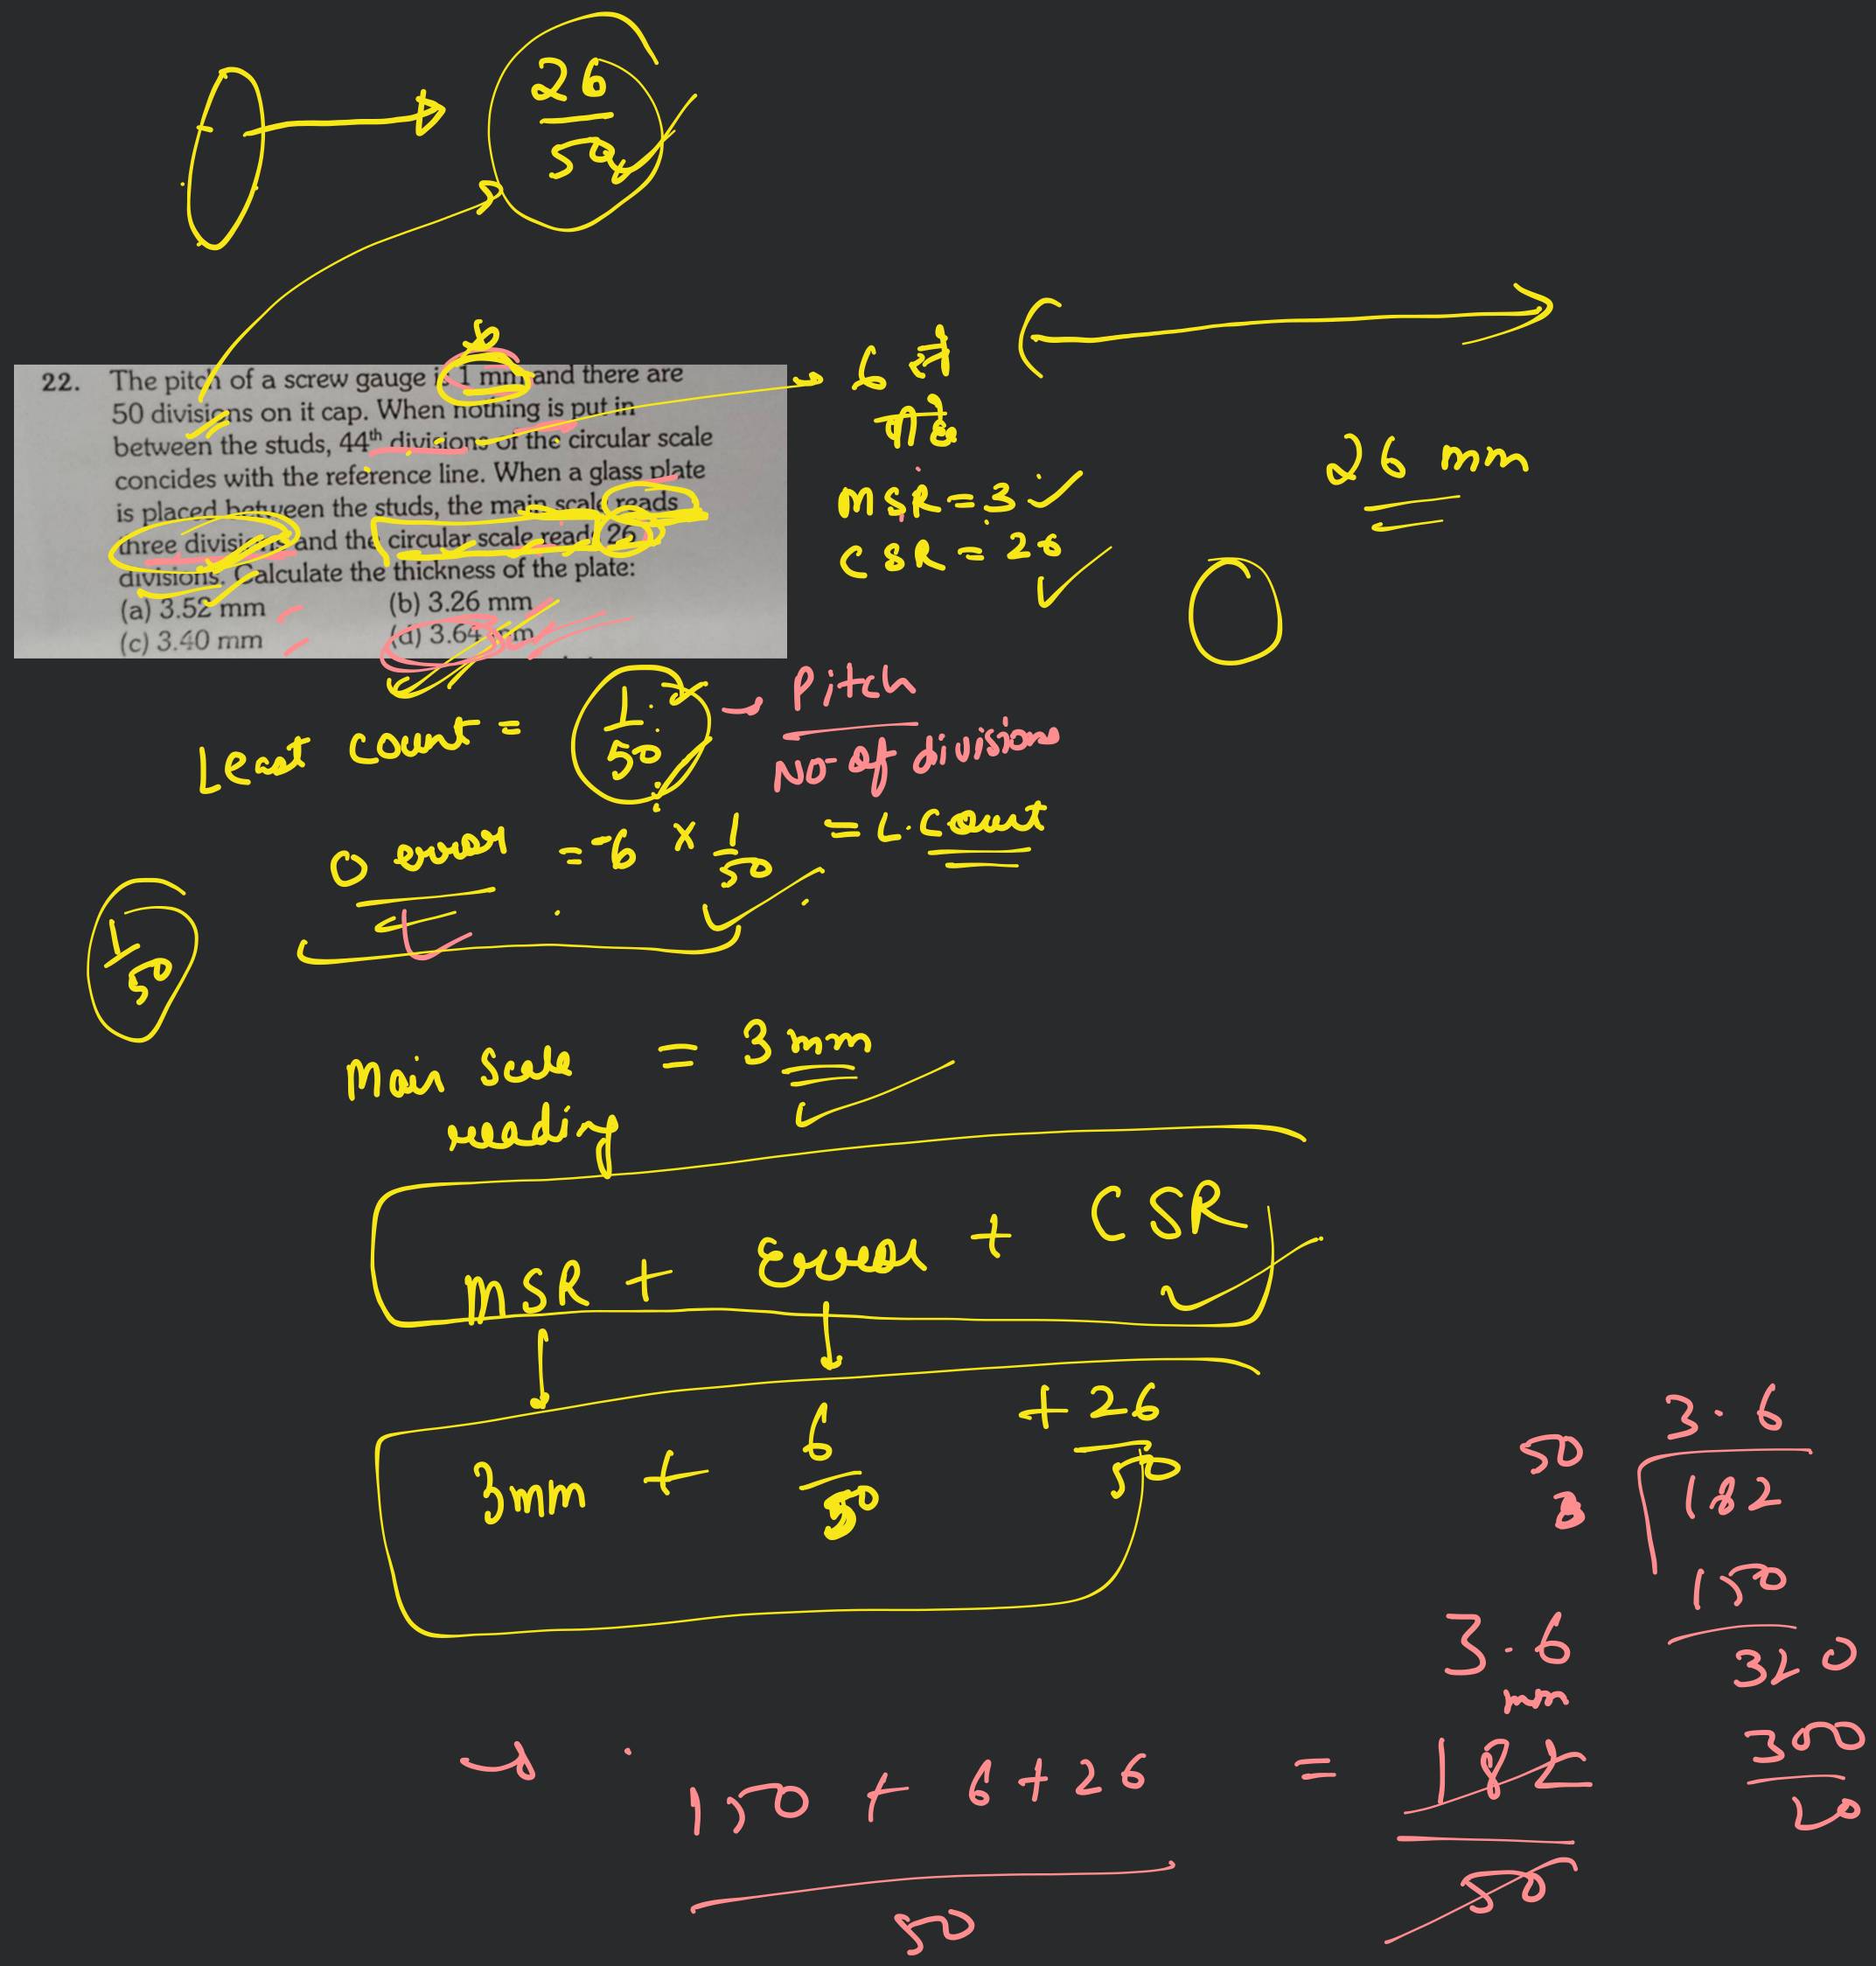 26
50
22. The pitch of a screw gauge is 1 mm and there are
50 divisions on it cap. When nothing is put in
between the studs, 44th divisions of the circular scale
concides with the reference line. When a glass plate
is placed between the studs, the main scale reads
three divisions and the circular scale reads 26
divisions. Calculate the thickness of the plate:
(a) 3.52 mm (b) 3.26 mm
(c) 3.40 mm (d) 3.64 mm
6
MSR = 3
CSR = 26
26 mm
Least count = 1
50
Pitch
No of divisions
0 error = -6 × 1
50
= L. Count
1
50
Main Scale = 3 mm
reading
MSR + Error + CSR
3mm + 6 + 26
50 50
3.6
50 182
3
150
320
300
20
3.6
mm
150 + 6 + 26 = 182
50 50